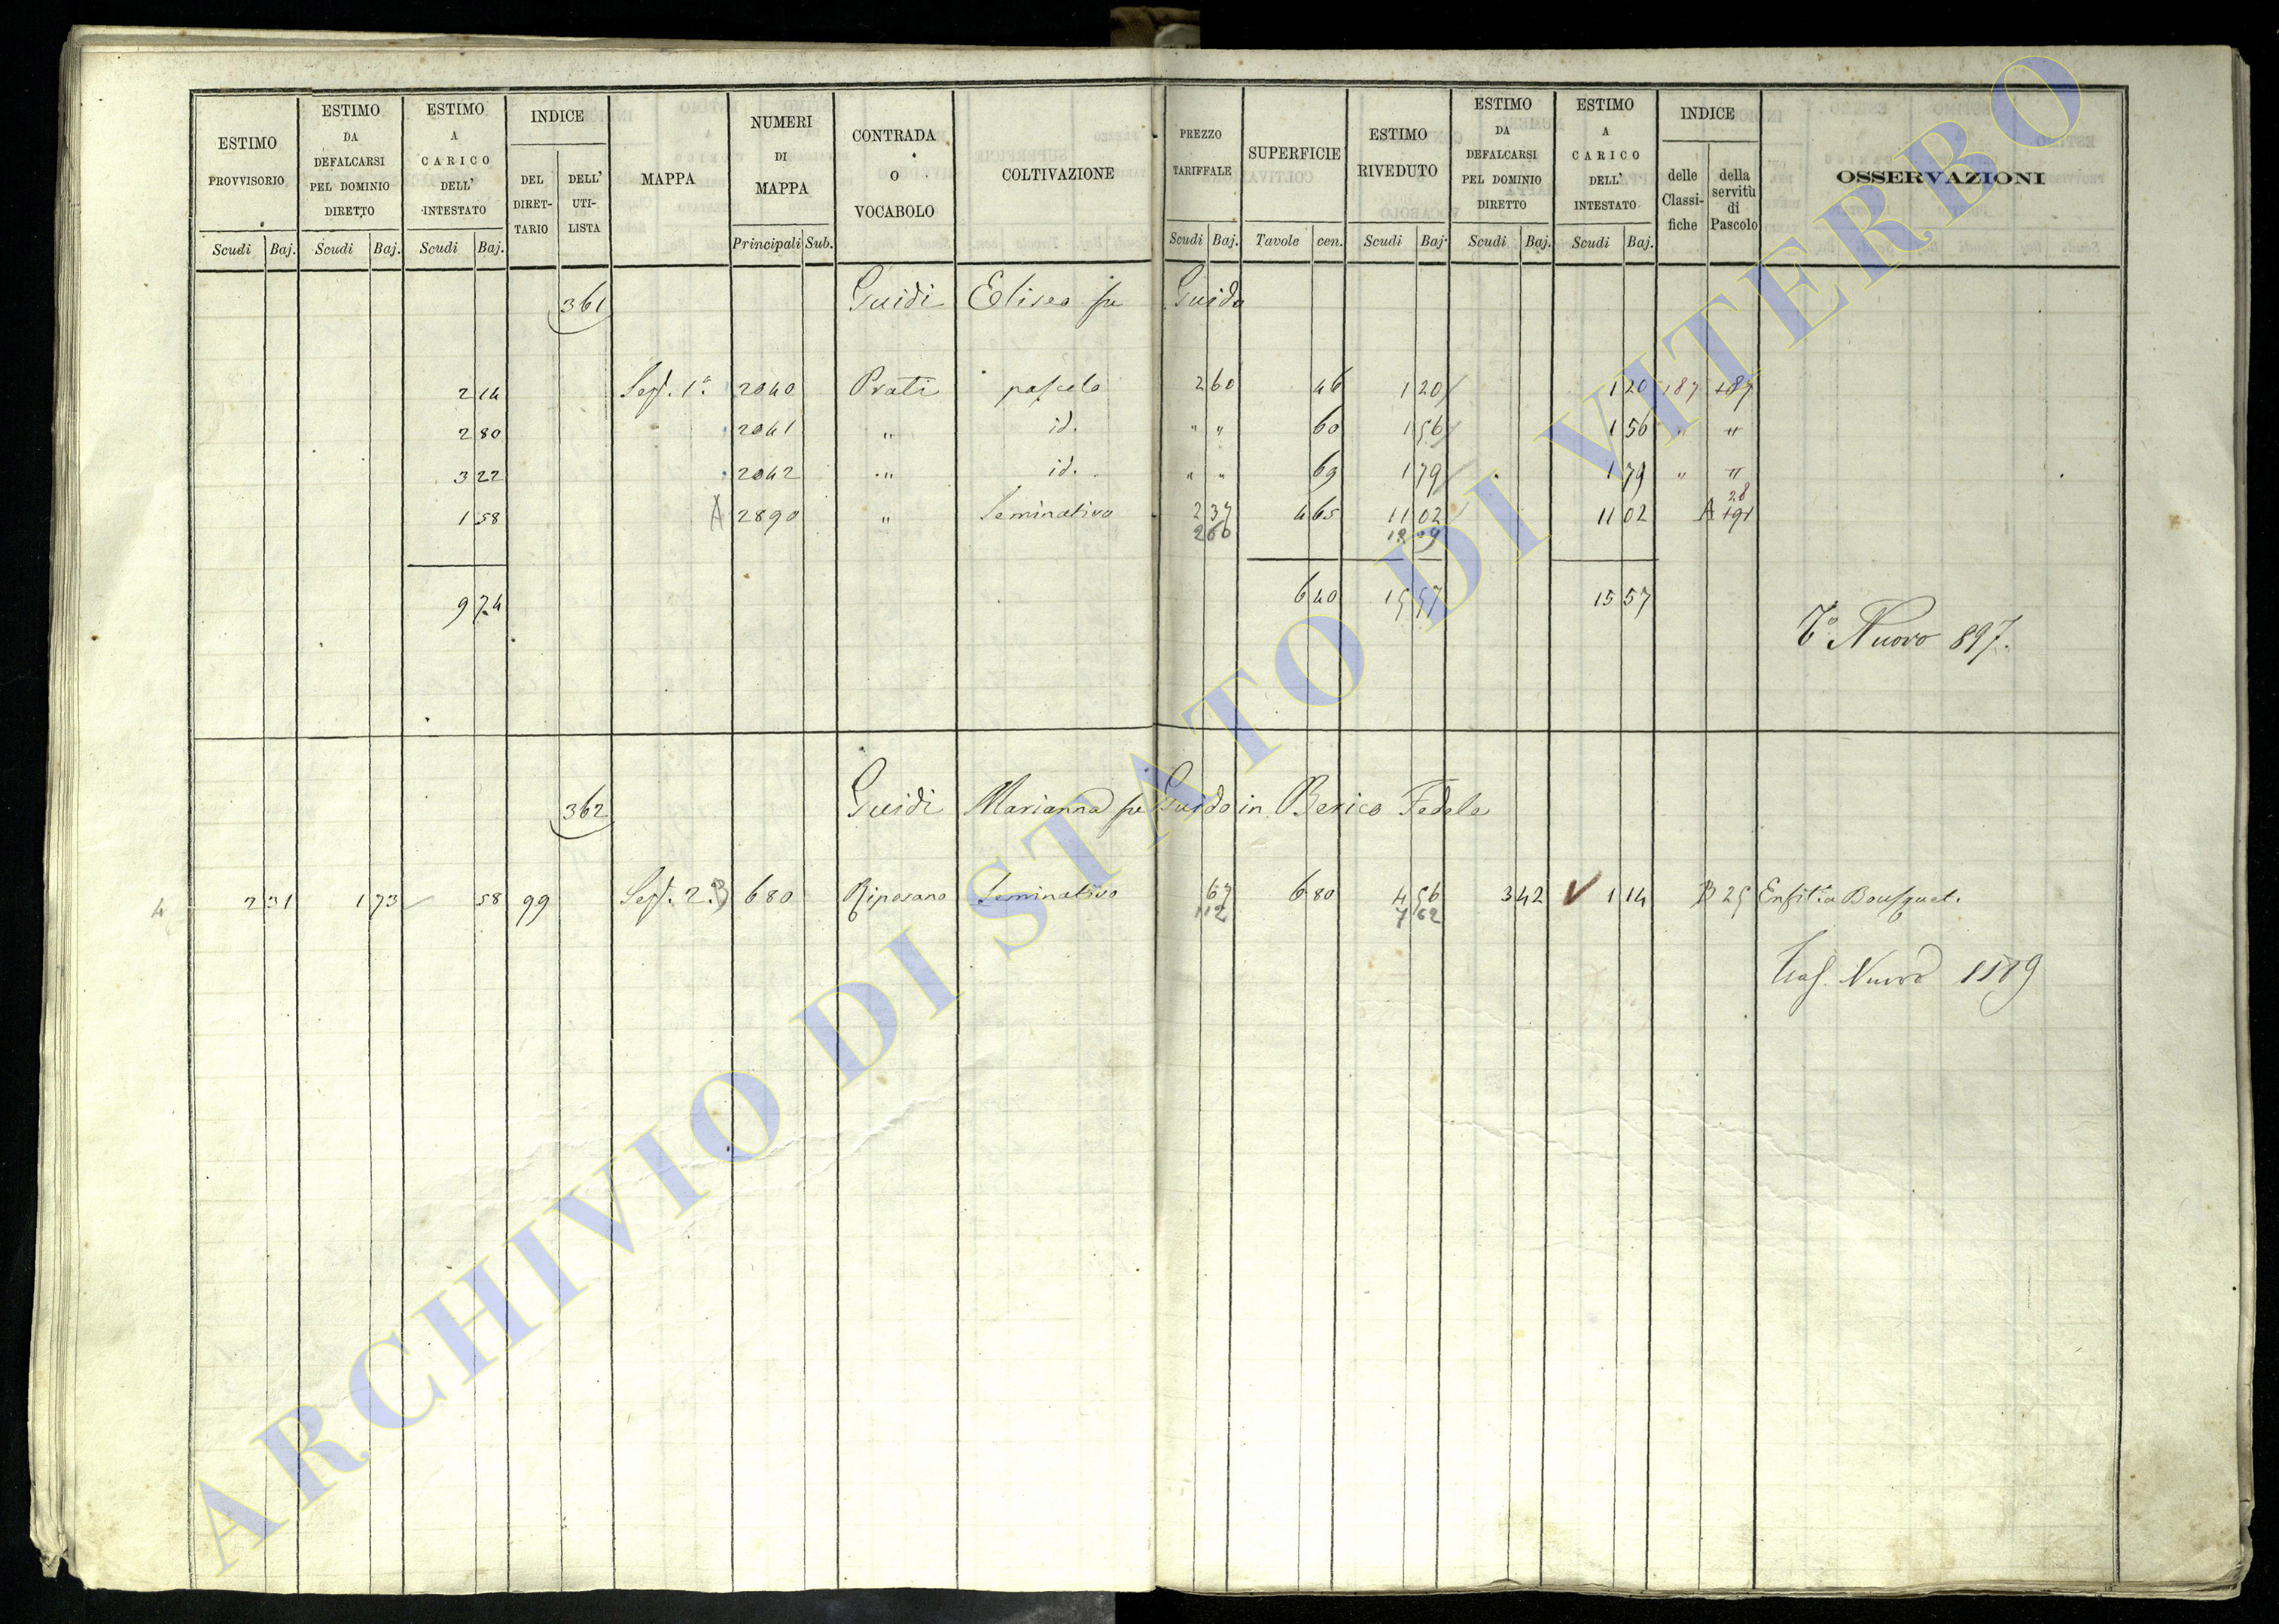 ESTIMO PROVVISORIO
ESTIMO DA DEFALCARSI PEL DOMINIO DIRETTO
ESTIMO A CARICO DELL' INTESTATO
INDICE
DEL DIRET-TARIO
DELL' UTI-LISTA
MAPPA
NUMERI DI MAPPA
CONTRADA O VOCABOLO
COLTIVAZIONE
PREZZO TARIFFALE
SUPERFICIE
ESTIMO RIVEDUTO
ESTIMO DA DEFALCARSI PEL DOMINIO DIRETTO
ESTIMO A CARICO DELL' INTESTATO
INDICE
delle Classi-fiche
della servitù di Pascolo
OSSERVAZIONI
Scudi Baj. Scudi Baj. Scudi Baj. Principali Sub. Scudi Baj. Tavole cen. Scudi Baj. Scudi Baj. Scudi Baj.
361 Guidi Eliseo fu Guido
2 14 Sez. 1ª 2040 Prati pascolo 2 60 46 1 20 1 20 187 187
2 80 2041 " id. " " 60 1 56 1 56 " "
3 22 2042 " id. " " 69 1 79 1 79 " "
28
1 58 A 2890 " Seminativo 2 37 4 65 11 02 11 02 A 191
2 60 12 09
9 74 6 40 15 57 15 57
Tº Nuovo 897.
362 Guidi Marianna fu Guido in Berico Fedele
4 2 31 1 73 58 99 Sez. 2ª B 680 Riposano Seminativo 67 6 80 4 56 3 42 V 1 14 B 25 Enfit.a Bousquet.
1 12 7 62
Nuovo 1119
ARCHIVIO DI STATO DI VITERBO